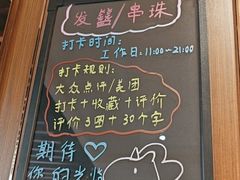 发簪/串珠
打卡时间:
工作日:11:00~21:00
打卡规则:
大众点评/美团
打卡+收藏+评价
评价3图+30个字
期待♡
你的光临